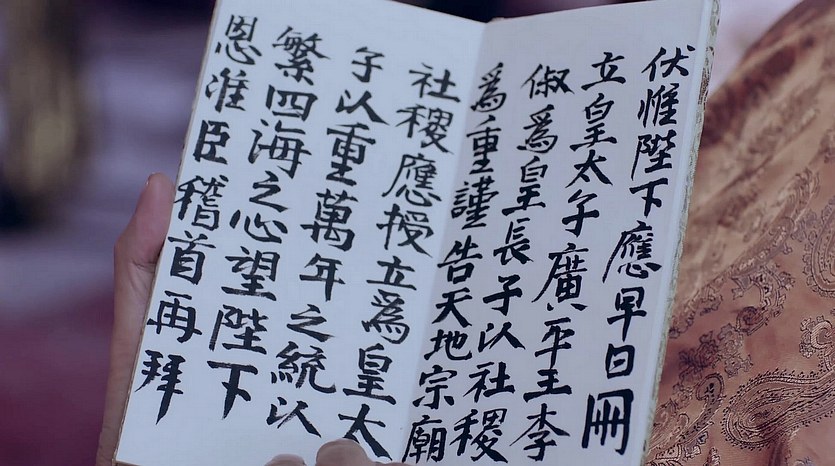 伏惟陛下應早日冊
立皇太子廣平王李
俶爲皇長子以社稷
爲重謹告天地宗廟
社稷應授立爲皇太
子以重萬年之統以
繁四海之心望陛下
恩准臣稽首再拜